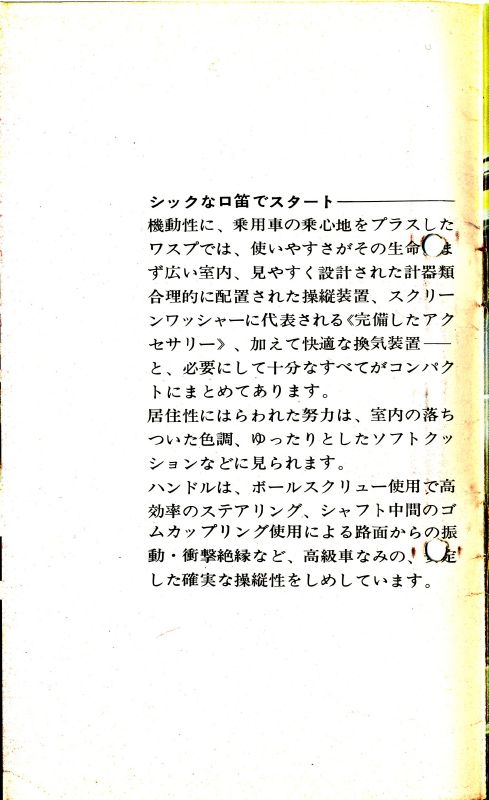 シックな口笛でスタート―――
機動性に、乗用車の乗心地をプラスした
ワスプでは、使いやすさがその生命 ま
ず広い室内、見やすく設計された計器類
合理的に配置された操縦装置、スクリー
ンワッシャーに代表される《完備したアク
セサリー》、加えて快適な換気装置――
と、必要にして十分なすべてがコンパク
トにまとめてあります。
居住性にはらわれた努力は、室内の落ち
ついた色調、ゆったりとしたソフトクッ
ションなどに見られます。
ハンドルは、ボールスクリュー使用で高
効率のステアリング、シャフト中間のゴ
ムカップリング使用による路面からの振
動・衝撃絶縁など、高級車なみの、 定
した確実な操縦性をしめしています。